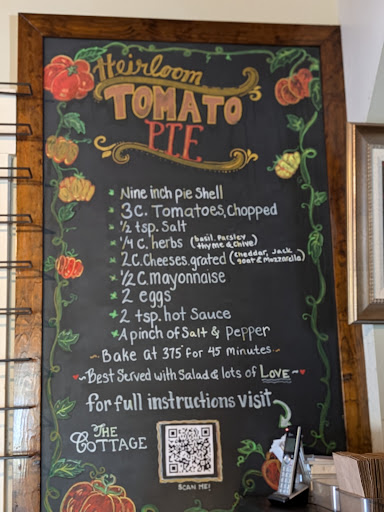 Heirloom
TOMATO
PIE
Nine inch pie Shell
3C. Tomatoes, Chopped
1/2 tsp. Salt
1/4 C. herbs (basil, Parsley
thyme & Chive)
2 C. Cheeses, grated (Cheddar, Jack,
goat & Mozzarella)
1/2 C. mayonnaise
2 eggs
2 tsp. hot Sauce
A pinch of Salt & Pepper
~ Bake at 375 for 45 Minutes ~
~Best Served with Salad & lots of LOVE~
for full instructions visit
THE
COTTAGE
SCAN ME!